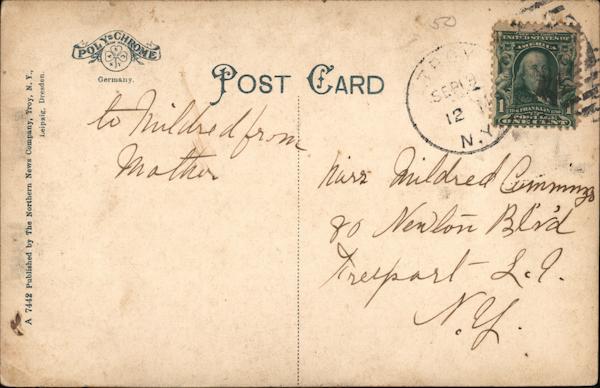 POLY-CHROME
Germany.
A 7442 Published by The Northern News Company, Troy, N. Y.,
Leipzig, Dresden.
POST CARD
50
TROY
SEP 12
12
N.Y.
UNITED STATES OF
AMERICA
1 FRANKLIN 1
POSTAGE
ONE CENT
to Mildred from
Mother
Miss Mildred Cummings
80 Newton Blvd
Freeport L.I.
N.Y.